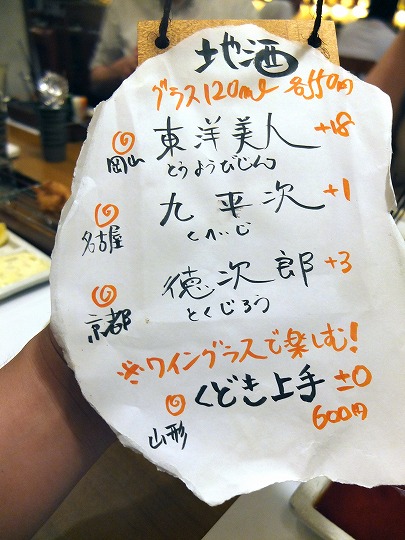 地酒
グラス120ml 各550円
岡山 東洋美人 +18
とうようびじん
九平次 +1
名古屋 くへいじ
徳次郎 +3
京都 とくじろう
※ワイングラスで楽しむ!
くどき上手 ±0
山形 600円